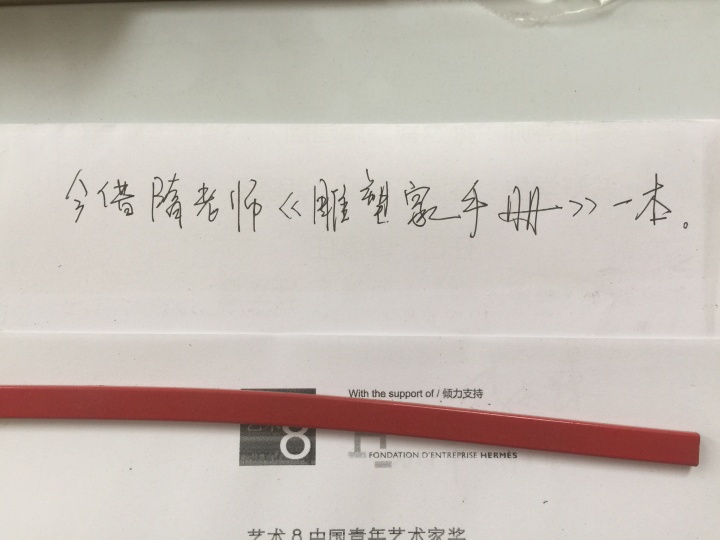 今借隋老师《雕塑家手册》一本。
With the support of / 倾力支持
8
FONDATION D'ENTREPRISE HERMÈS
艺术 8 中国青年艺术家奖